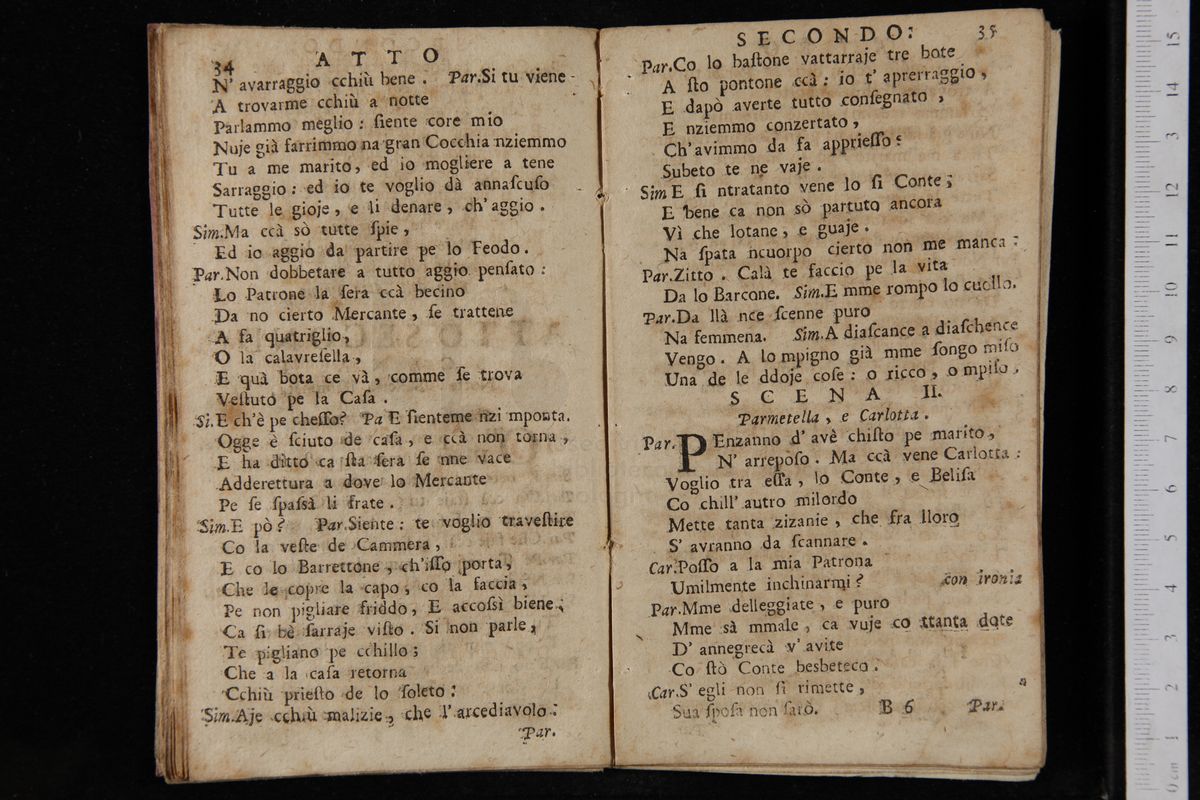 34 ATTO
N' avarraggio cchiù bene. Par.Si tu viene
A trovarme cchiù a notte
Parlammo meglio: ſiente core mio
Nuje già farrimmo na gran Cocchia nziemmo
Tu a me marito, ed io mogliere a tene
Sarraggio: ed io te voglio dà annaſcuſo
Tutte le gioje, e li denare, ch'aggio.
Sim.Ma ccà sò tutte ſpie,
Ed io aggio da partire pe lo Feodo.
Par.Non dobbetare a tutto aggio penſato:
Lo Patrone la ſera ccà becino
Da no cierto Mercante, ſe trattene
A fa quatriglio,
O la calavreſella,
E quà bota ce và, comme ſe trova
Veſtuto pe la Caſa.
Si.E ch'è pe cheſſo? Pa E ſienteme nzi mponta.
Ogge è ſciuto de caſa, e ccà non torna,
E ha ditto ca ſta ſera ſe nne vace
Adderettura a dove lo Mercante
Pe ſe ſpaſsà li frate.
Sim.E pò? Par.Siente: te voglio traveſtire
Co la veſte de Cammera,
E co lo Barrettone, ch'iſſo porta,
Che le copre la capo, co la faccia,
Pe non pigliare friddo, E accoſsì biene;
Ca ſi bè ſarraje viſto. Si non parle,
Te pigliano pe cchillo;
Che a la caſa retorna
Cchiù prieſto de lo ſoleto:
Sim.Aje cchiù malizie, che l'arcediavolo:
Par.
SECONDO: 35
Par.Co lo baſtone vattarraje tre bote
A ſto pontone ccà: io t' aprerraggio,
E dapò averte tutto conſegnato,
E nziemmo conzertato,
Ch'avimmo da fa apprieſſo:
Subeto te ne vaje.
Sim E ſi ntratanto vene lo ſi Conte;
E bene ca non sò partuto ancora
Vì che lotane, e guaje.
Na ſpata ncuorpo cierto non me manca:
Par.Zitto. Calà te faccio pe la vita
Da lo Barcone. Sim.E mme rompo lo cuollo.
Par.Da llà nce ſcenne puro
Na femmena. Sim.A diaſcance a diaſchence
Vengo. A lo mpigno già mme ſongo miſo
Una de le ddoje coſe: o ricco, o mpiſo.
SCENA II.
Parmetella, e Carlotta.
Par. PEnzanno d' avè chiſto pe marito,
N' arrepoſo. Ma ccà vene Carlotta:
Voglio tra eſſa, lo Conte, e Beliſa
Co chill' autro milordo
Mette tanta zizanie, che fra lloro
S' avranno da ſcannare.
Car.Poſſo a la mia Patrona
Umilmente inchinarmi? con ironia
Par.Mme delleggiate, e puro
Mme sà mmale, ca vuje co ttanta dote
D' annegrecà v' avite
Co ſtò Conte besbeteco.
Car.S' egli non ſi rimette,
Sua ſpoſa non ſarò. B 6 Par.